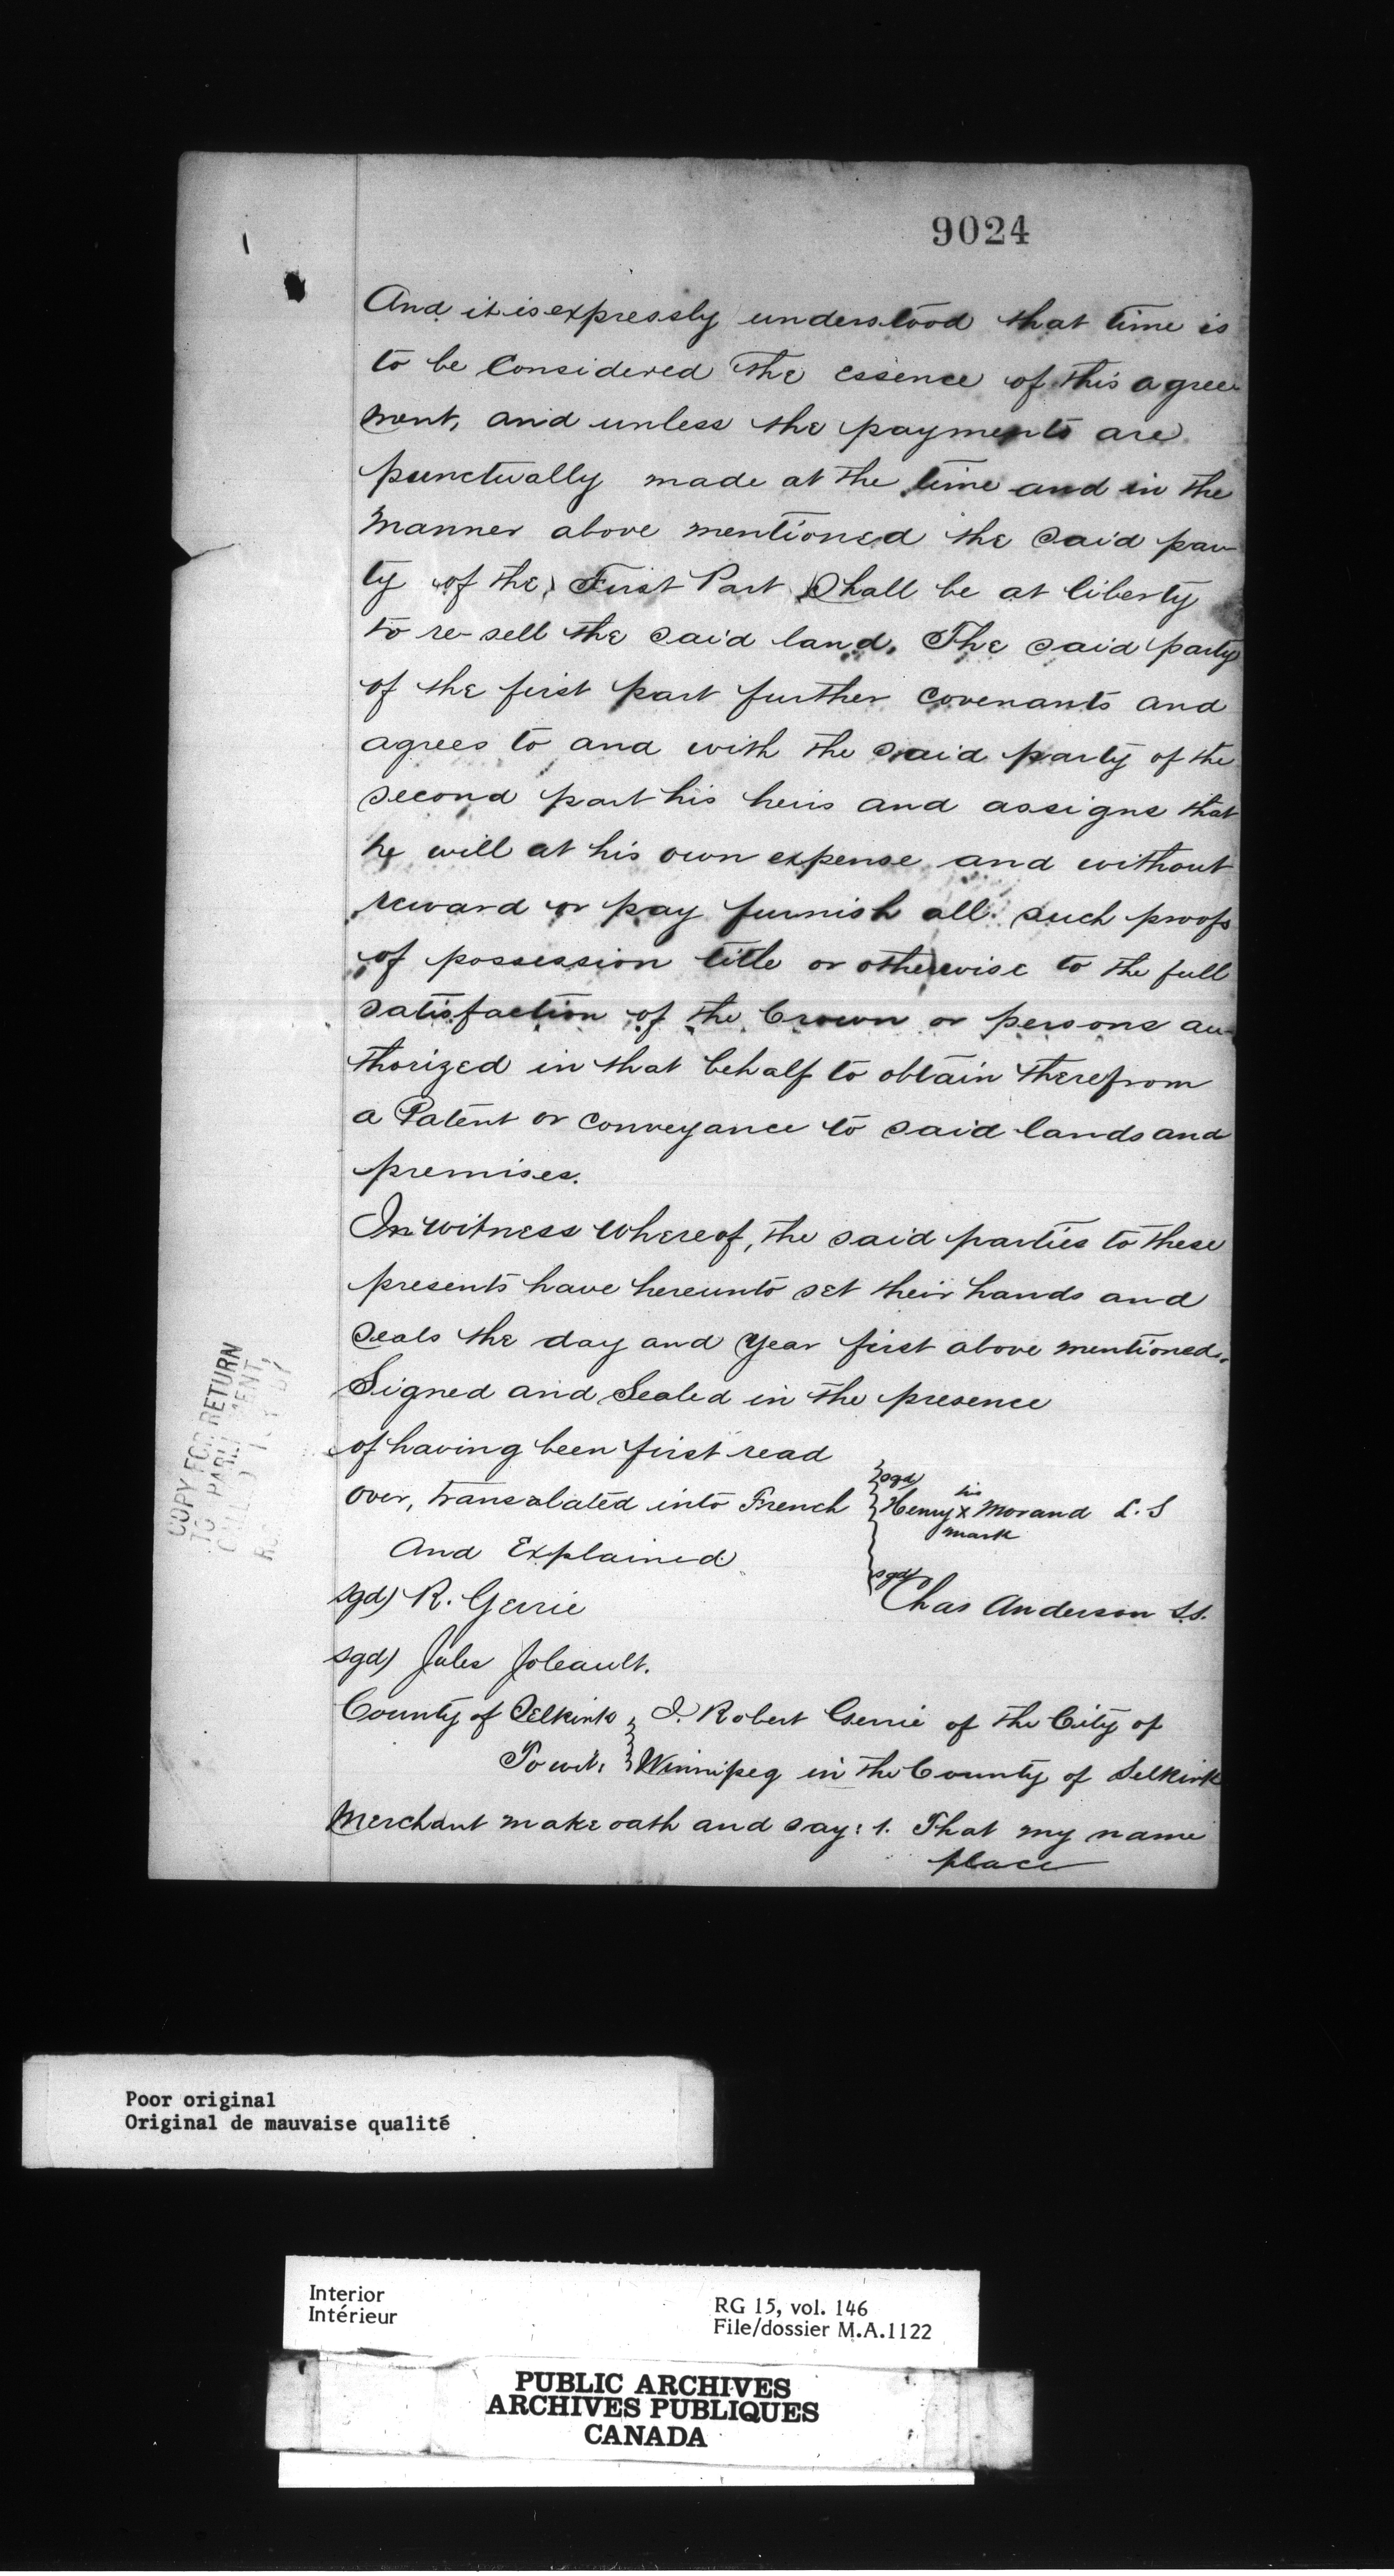 9024
And it is expressly understood that time is
to be Considered the essence of this agree
ment, and unless the payments are
punctually made at the time and in the
Manner above mentioned the said par-
ty of the First Part Shall be at liberty
to re-sell the said land. The said party
of the first part further covenants and
agrees to and with the said party of the
second part his heirs and assigns that
he will at his own expense and without
reward or pay furnish all such proofs
of possession title or otherwise to the full
satisfaction of the Crown or persons au-
thorized in that behalf to obtain therefrom
a Patent or conveyance to said lands and
premises.
In witness whereof, the said parties to these
presents have hereunto set their hands and
seals the day and year first above mentioned.
Signed and Sealed in the presence
of having been first read
over, translated into French
And Explained
sgd) R. Gerrie
sgd) Jules
sgd)
his
Henry x Morand L.S
mark
sgd)
Chas Anderson L.S.
County of Selkirk
To wit:
I. Robert Gerrie of the City of
Winnipeg in the County of Selkirk
Merchant make oath and say: 1. That my name
place
COPY FOR RETURN
TO PARLIAMENT,
Poor original
Original de mauvaise qualité
Interior
Intérieur
RG 15, vol. 146
File/dossier M.A.1122
PUBLIC ARCHIVES
ARCHIVES PUBLIQUES
CANADA